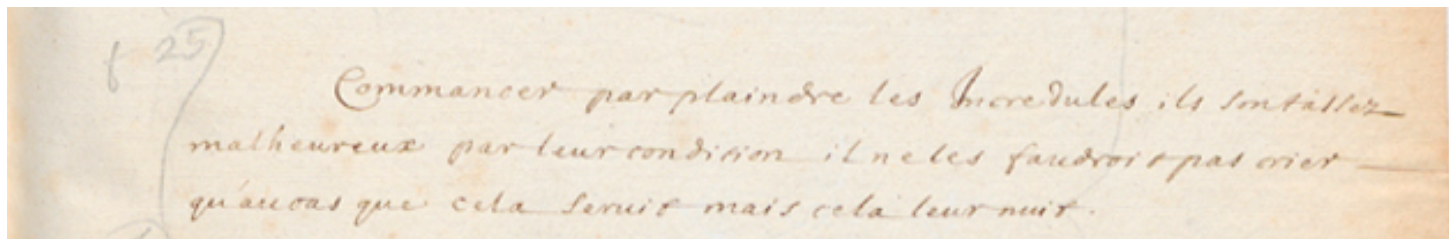 25
Commancer par plaindre les Incredules ils sont assez
malheureux par leur condition il ne les faudroit pas crier
qu'au cas que cela seruit mais cela leur nuit.